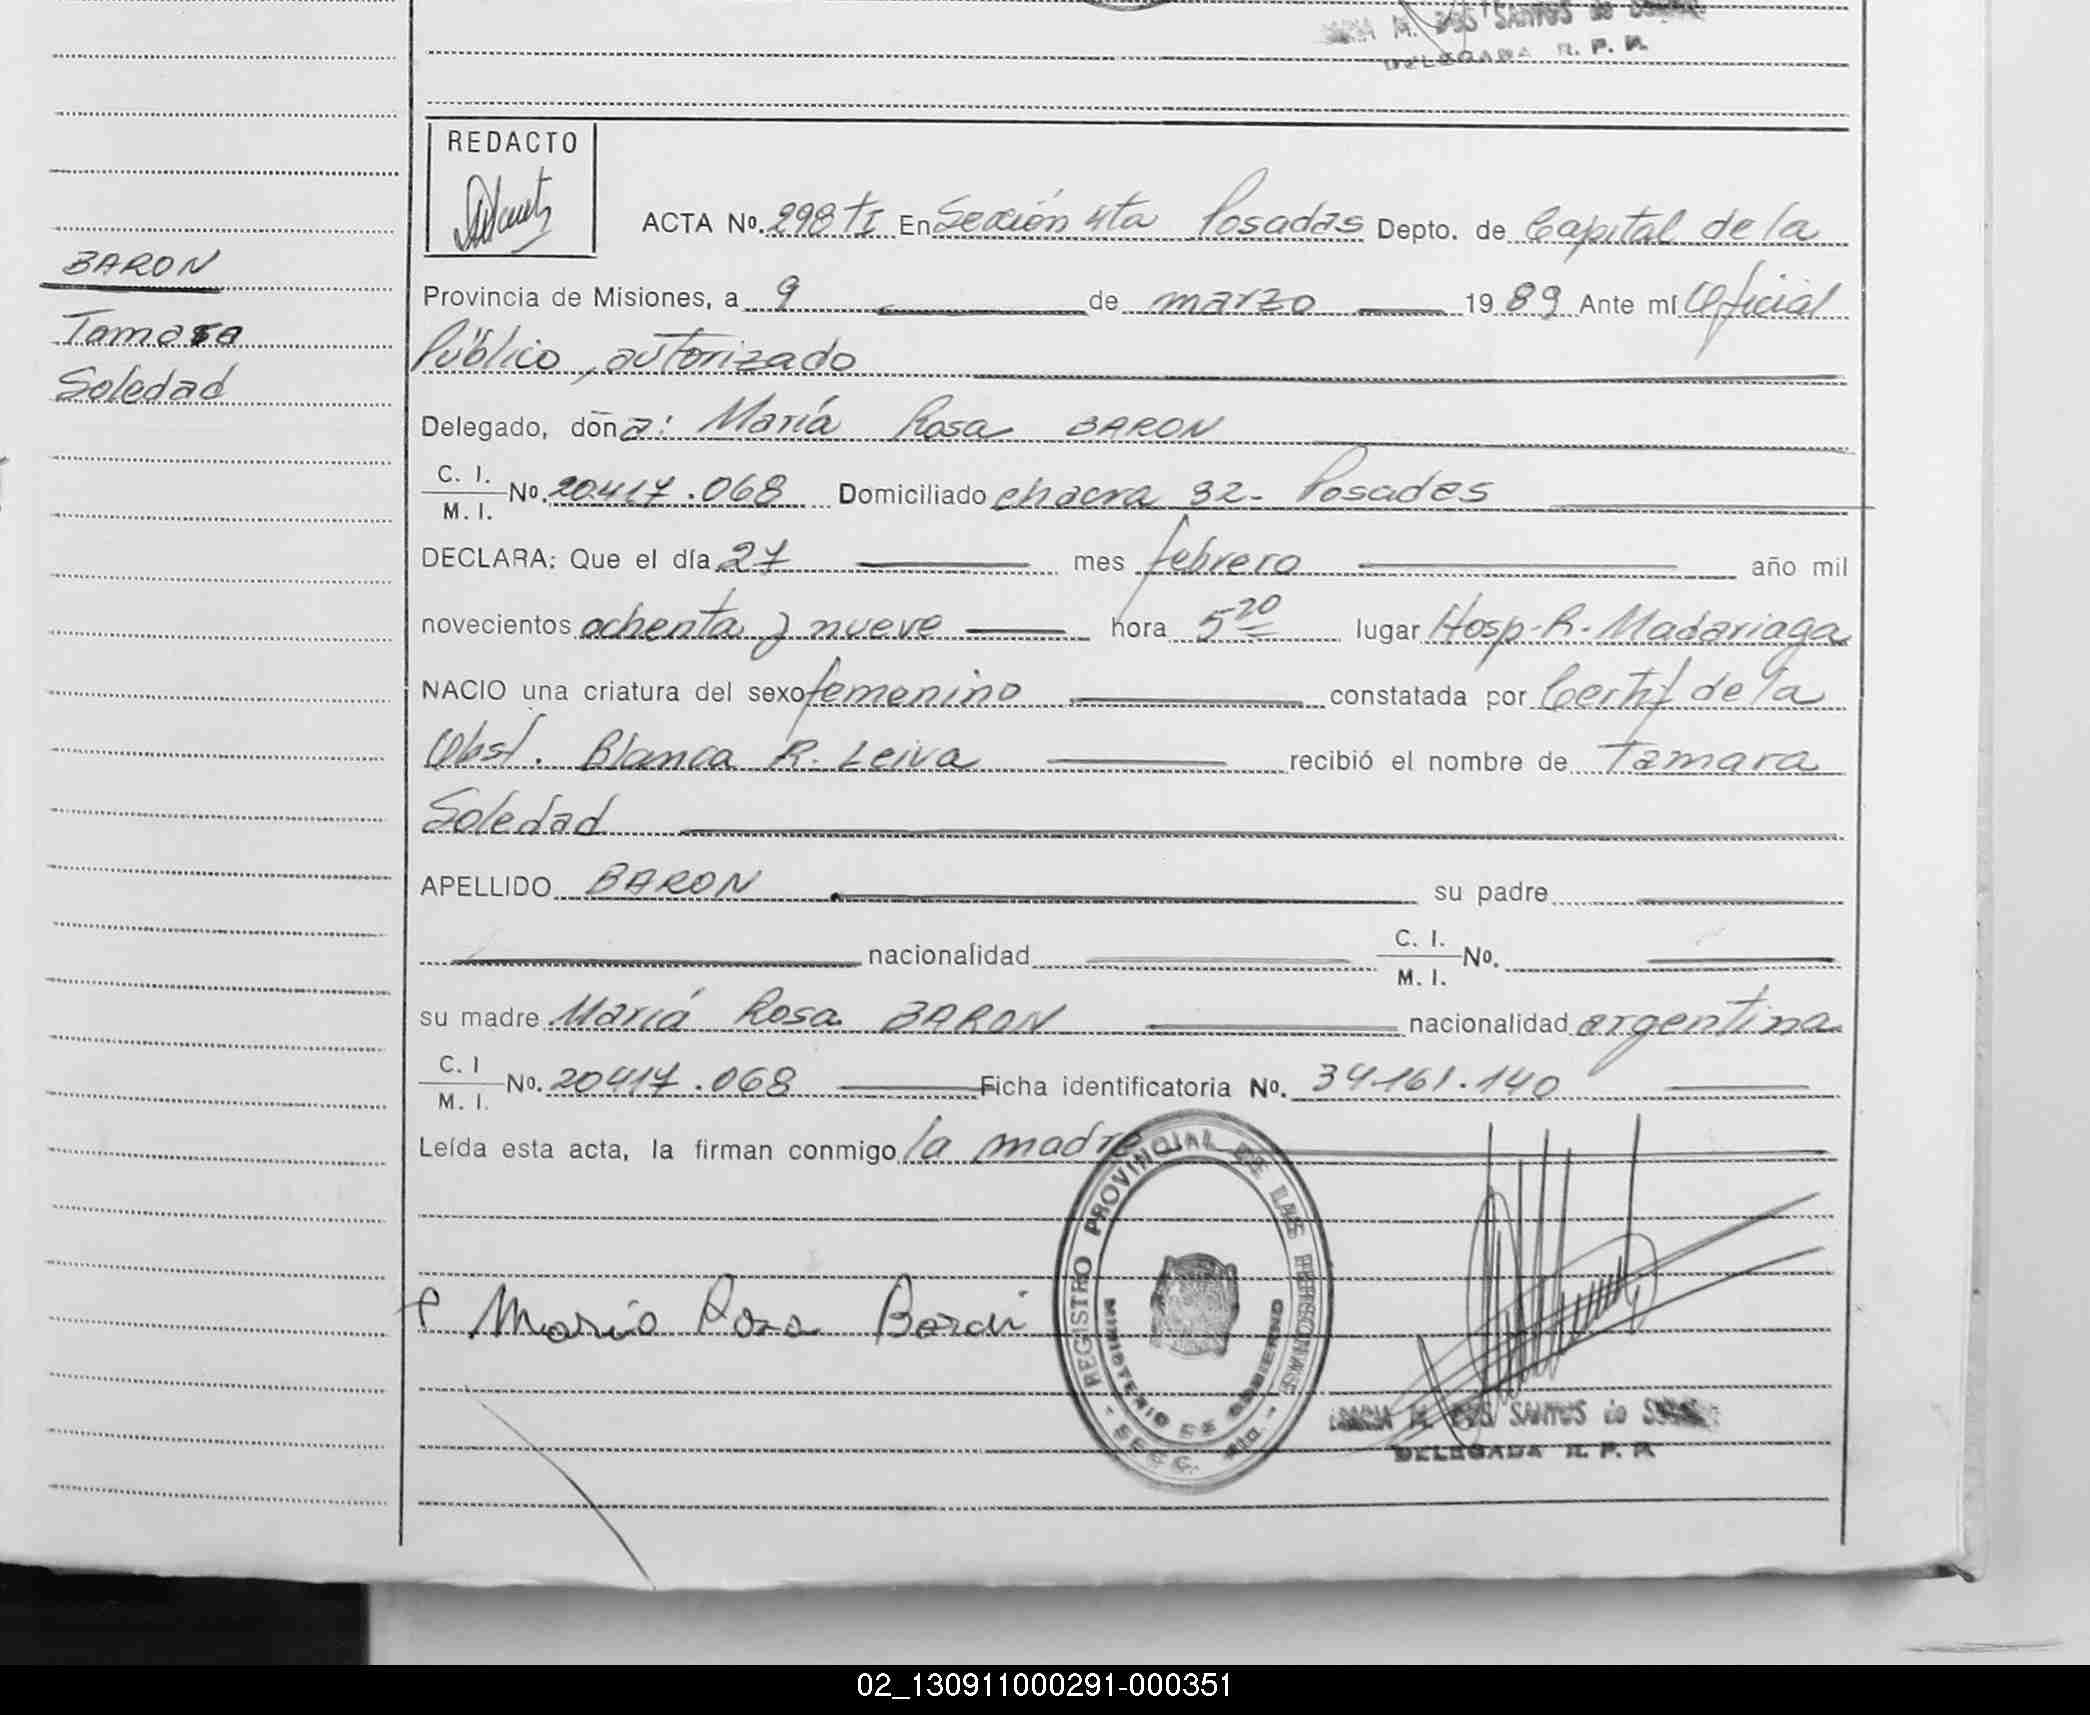 DOS SANTOS de
DELEGADA R. P. P.
REDACTO
ACTA No. 298 tI En Sección 4ta Posadas Depto. de Capital de la
BARON
Provincia de Misiones, a 9 de marzo 1989 Ante mí Oficial
Tamara
Público, autorizado
Soledad
Delegado, doña: María Rosa BARON
C. I. / M. I. No. 20.417.068 Domiciliado chacra 32- Posadas
DECLARA: Que el día 27 mes febrero año mil
novecientos ochenta y nueve hora 5 20 lugar Hosp. R. Madariaga
NACIO una criatura del sexo femenino constatada por Certif de la
Obst. Blanca R. Leiva recibió el nombre de Tamara
Soledad
APELLIDO BARON su padre
nacionalidad C. I. / M. I. No.
su madre María Rosa BARON nacionalidad argentina
C. I / M. I. No. 20417.068 Ficha identificatoria No. 34.161.140
Leída esta acta, la firman conmigo la madre
María Rosa Baron
REGISTRO PROVINCIAL DE LAS PERSONAS
MINISTERIO DE GOBIERNO
- SECC. 4ta. -
M. DOS SANTOS de
DELEGADA R. P. P.
02_130911000291-000351